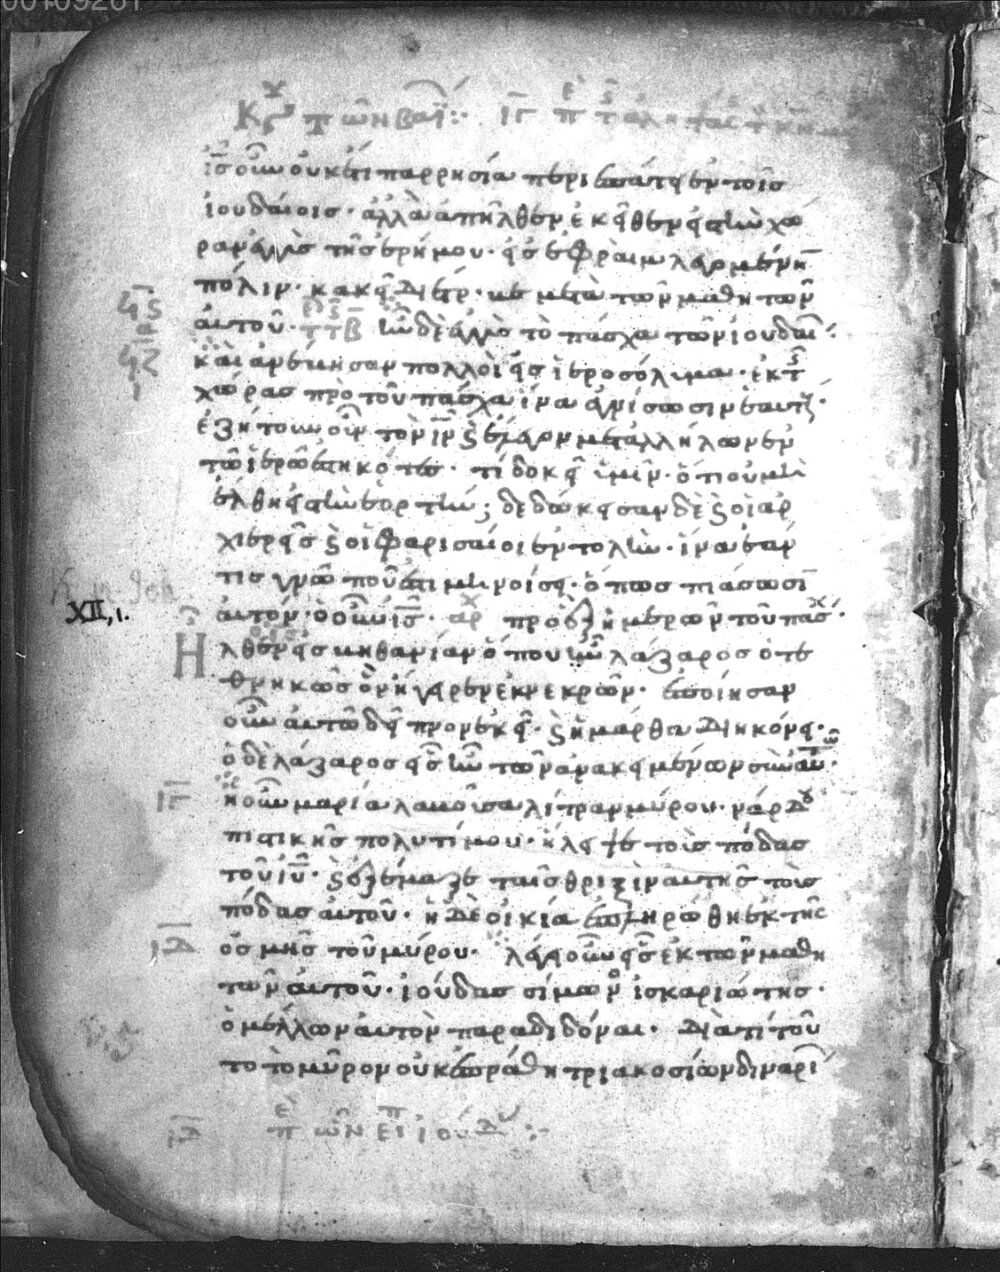 Κυ τῶν βαΐ :· ιγ π τ ἀλ
ἰς οὖν οὐκέτι παρρησία περιεπάτει ἐν τοῖς
ἰουδαίοις · ἀλλὰ ἀπῆλθεν ἐκεῖθεν εἰς τὴν χώ
ραν ἐγγὺς τῆς ἐρήμου · εἰς ἐφραὶμ λεγομένην
πόλιν · κακεῖ διέτρ · με μετὰ τῶν μαθητῶν
αὐτοῦ · ἦν δὲ ἐγγὺς τὸ πάσχα τῶν ἰουδαί ·
καὶ ἀνέβησαν πολλοὶ εἰς ἱεροσόλυμα · ἐκ τ
χώρας πρὸ τοῦ πάσχα ἵνα ἁγνίσωσιν ἑαυτ ·
ἐζήτουν οὖν τὸν ἰν καὶ ἔλεγον μετ ἀλλήλων ἐν
τῶ ἱερῶ ἑστηκότες · τί δοκεῖ ὑμῖν · ὅτι οὐ μὴ
ἔλθη εἰς τὴν ἑορτήν ; δεδώκεισαν δὲ καὶ οἱ ἀρ
χιερεῖς καὶ οἱ φαρισαῖοι ἐντολὴν · ἵνα ἐάν
τις γνῶ ποῦ ἐστι μηνύση · ὅπως πιάσωσι
XII, 1.
αὐτόν · ὁ οὖν ἰς · ἀρ πρὸ ἓξ ἡμερῶν τοῦ πάσχ ·
Ηλθεν εἰς βηθανίαν ὅπου ἦν λάζαρος ὁ τε
θνηκὼς ὃν ἤγειρεν ἐκ νεκρῶν · ἐποίησαν
οὖν αὐτῶ δεῖπνον ἐκεῖ · καὶ ἡ μάρθα διηκόνει ·
ὁ δὲ λάζαρος εἷς ἦν τῶν ἀνακειμένων σὺν αὐτ ·
ιγ ἡ οὖν μαρία λαβοῦσα λίτραν μύρου · νάρδου
πιστικῆς πολυτίμου · ἤλειψε τοὺς πόδας
τοῦ ἰυ · καὶ ἐξέμαξε ταῖς θριξὶν αὐτῆς τοὺς
πόδας αὐτοῦ · ἡ δὲ οἰκία ἐπληρώθη ἐκ τῆς
ιδ ὀσμῆς τοῦ μύρου · λέγει οὖν εἷς ἐκ τῶν μαθη
τῶν αὐτοῦ · ἰούδας σίμων ἰσκαριώτης ·
ὁ μέλλων αὐτὸν παραδιδόναι · διατί τοῦ
το τὸ μῦρον οὐκ ἐπράθη τριακοσίων δηναρί
ιδ π ὧν εἶπ ἰούδ :·